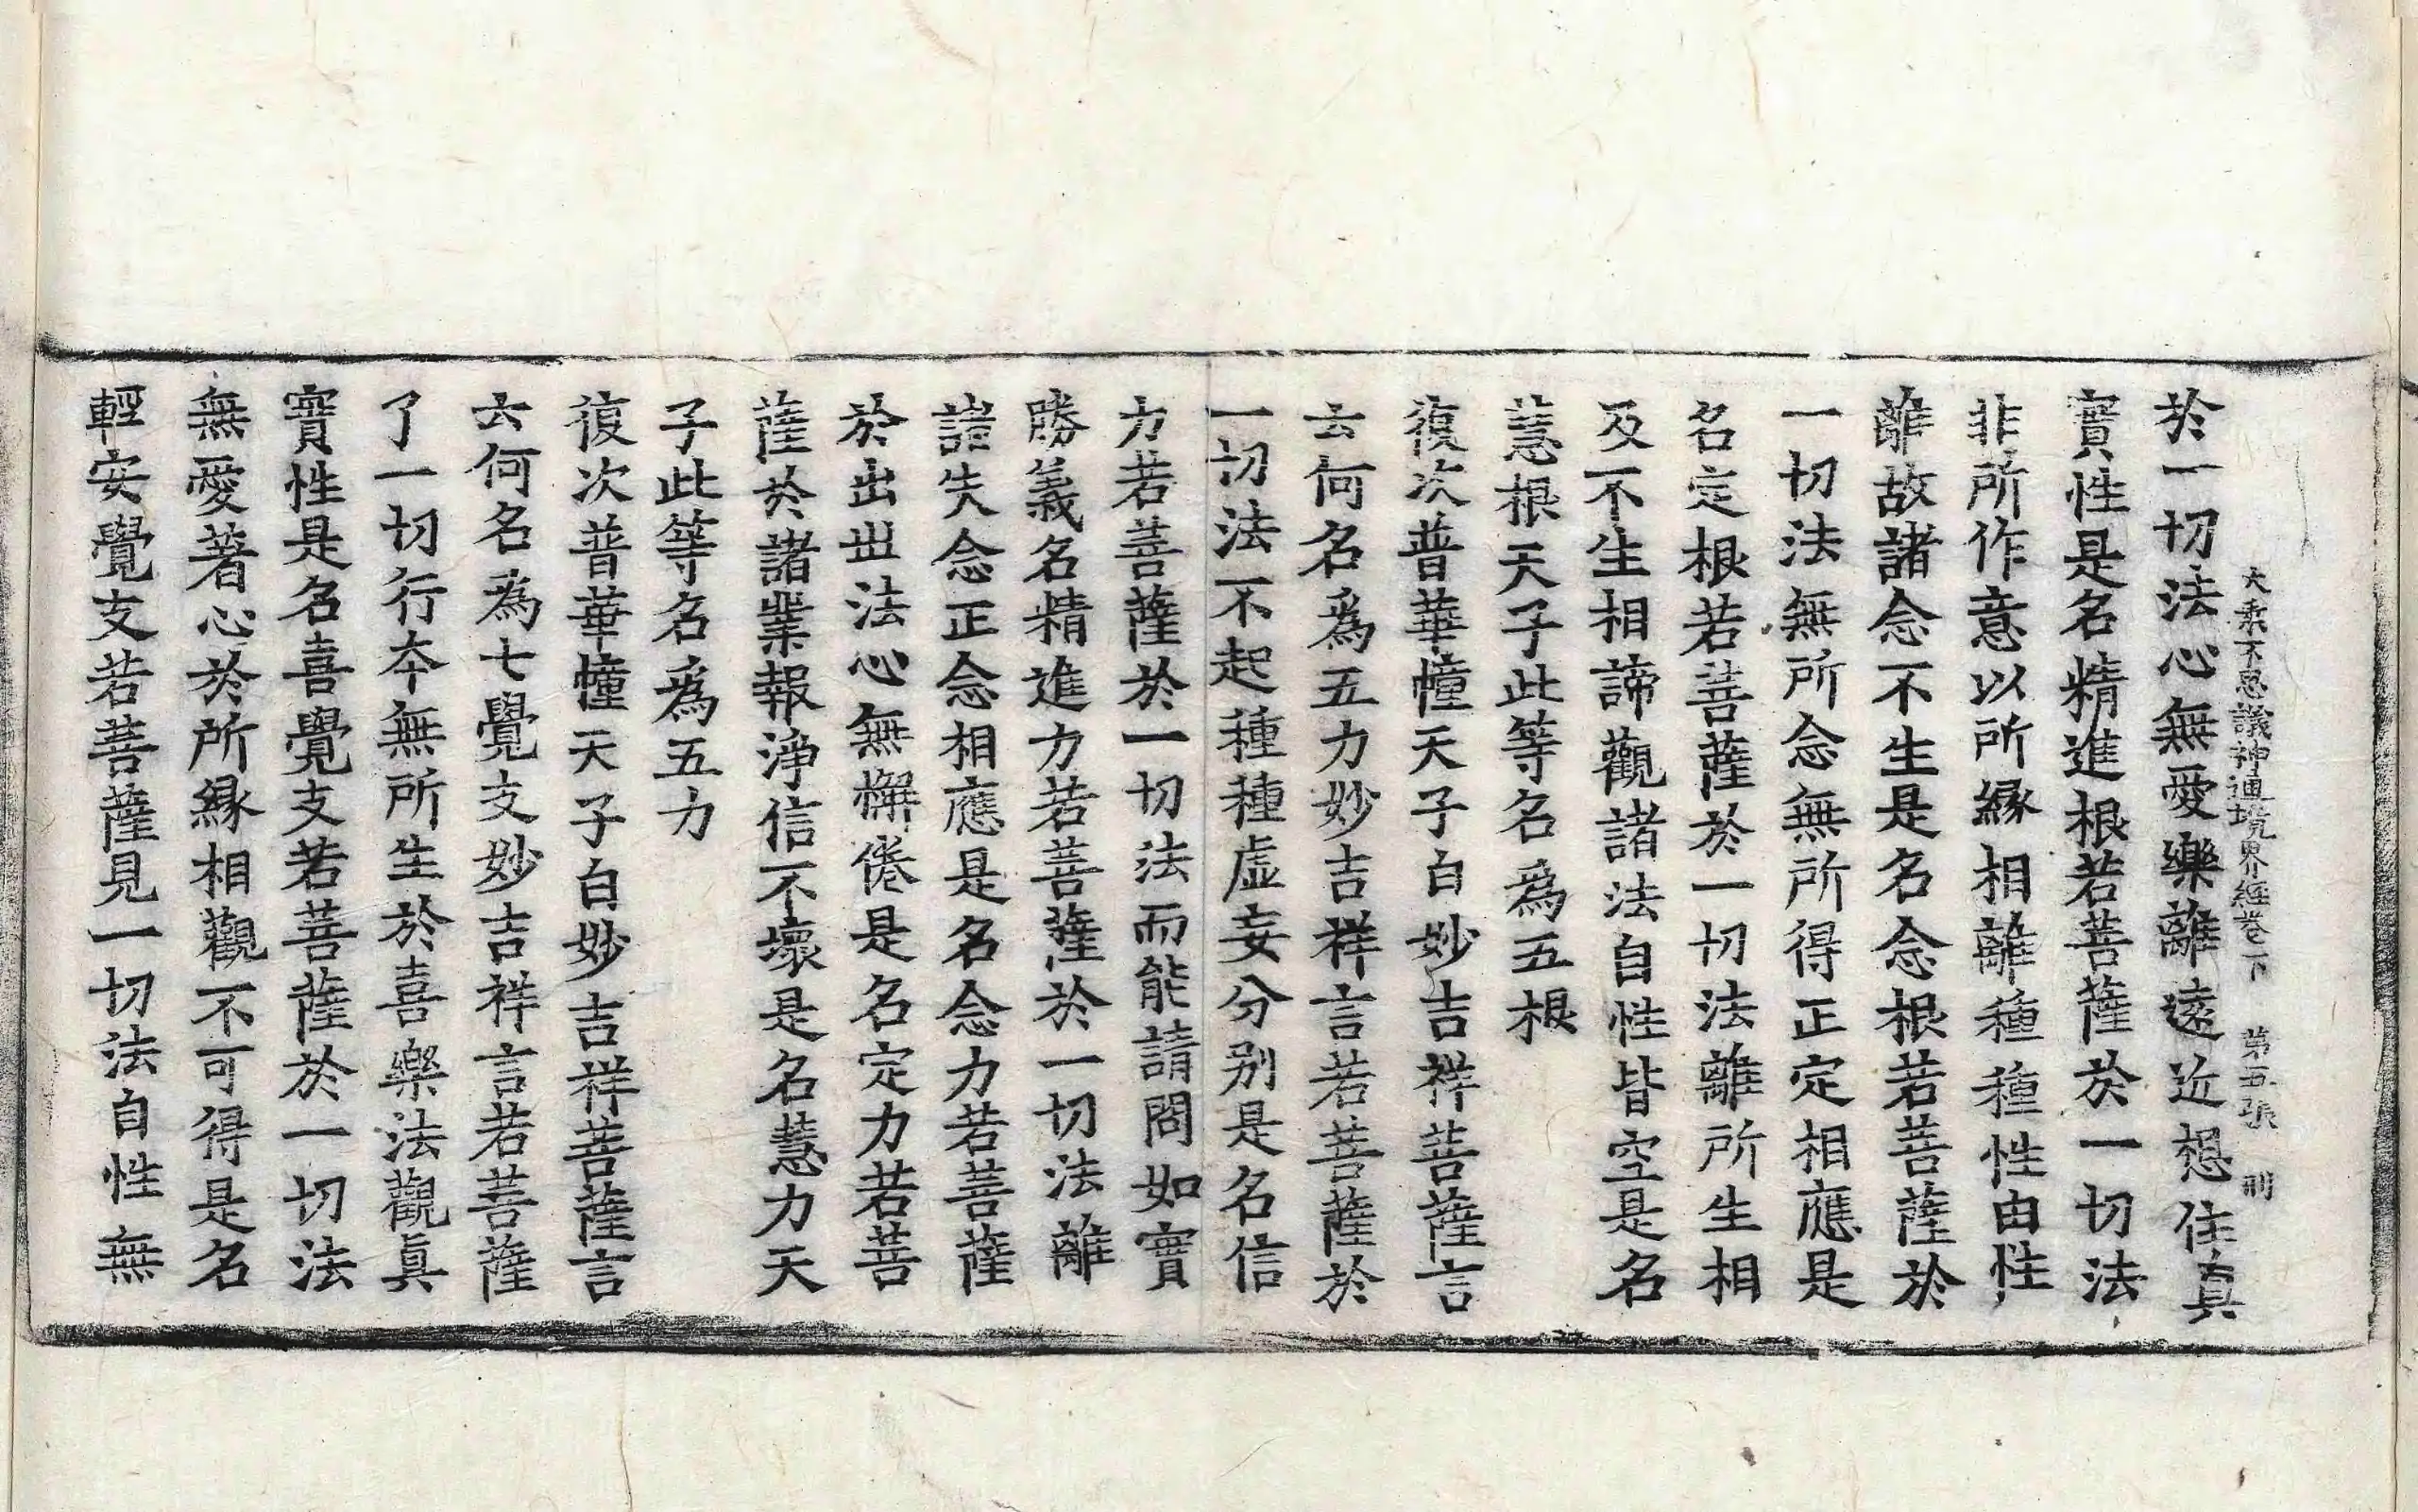 大乘不思議神通境界經卷下 第五張 刑
於一切法心無愛樂離遠近想住真
實性是名精進根若菩薩於一切法
非所作意以所緣相離種種性由性
離故諸念不生是名念根若菩薩於
一切法無所念無所得正定相應是
名定根若菩薩於一切法離所生相
及不生相諦觀諸法自性皆空是名
慧根天子此等名為五根
復次普華幢天子白妙吉祥菩薩言
云何名為五力妙吉祥言若菩薩於
一切法不起種種虛妄分別是名信
力若菩薩於一切法而能請問如實
勝義名精進力若菩薩於一切法離
諸失念正念相應是名念力若菩薩
於出世法心無懈倦是名定力若菩
薩於諸業報淨信不壞是名慧力天
子此等名為五力
復次普華幢天子白妙吉祥菩薩言
云何名為七覺支妙吉祥言若菩薩
了一切行本無所生於喜樂法觀真
實性是名喜覺支若菩薩於一切法
無愛著心於所緣相觀不可得是名
輕安覺支若菩薩見一切法自性無